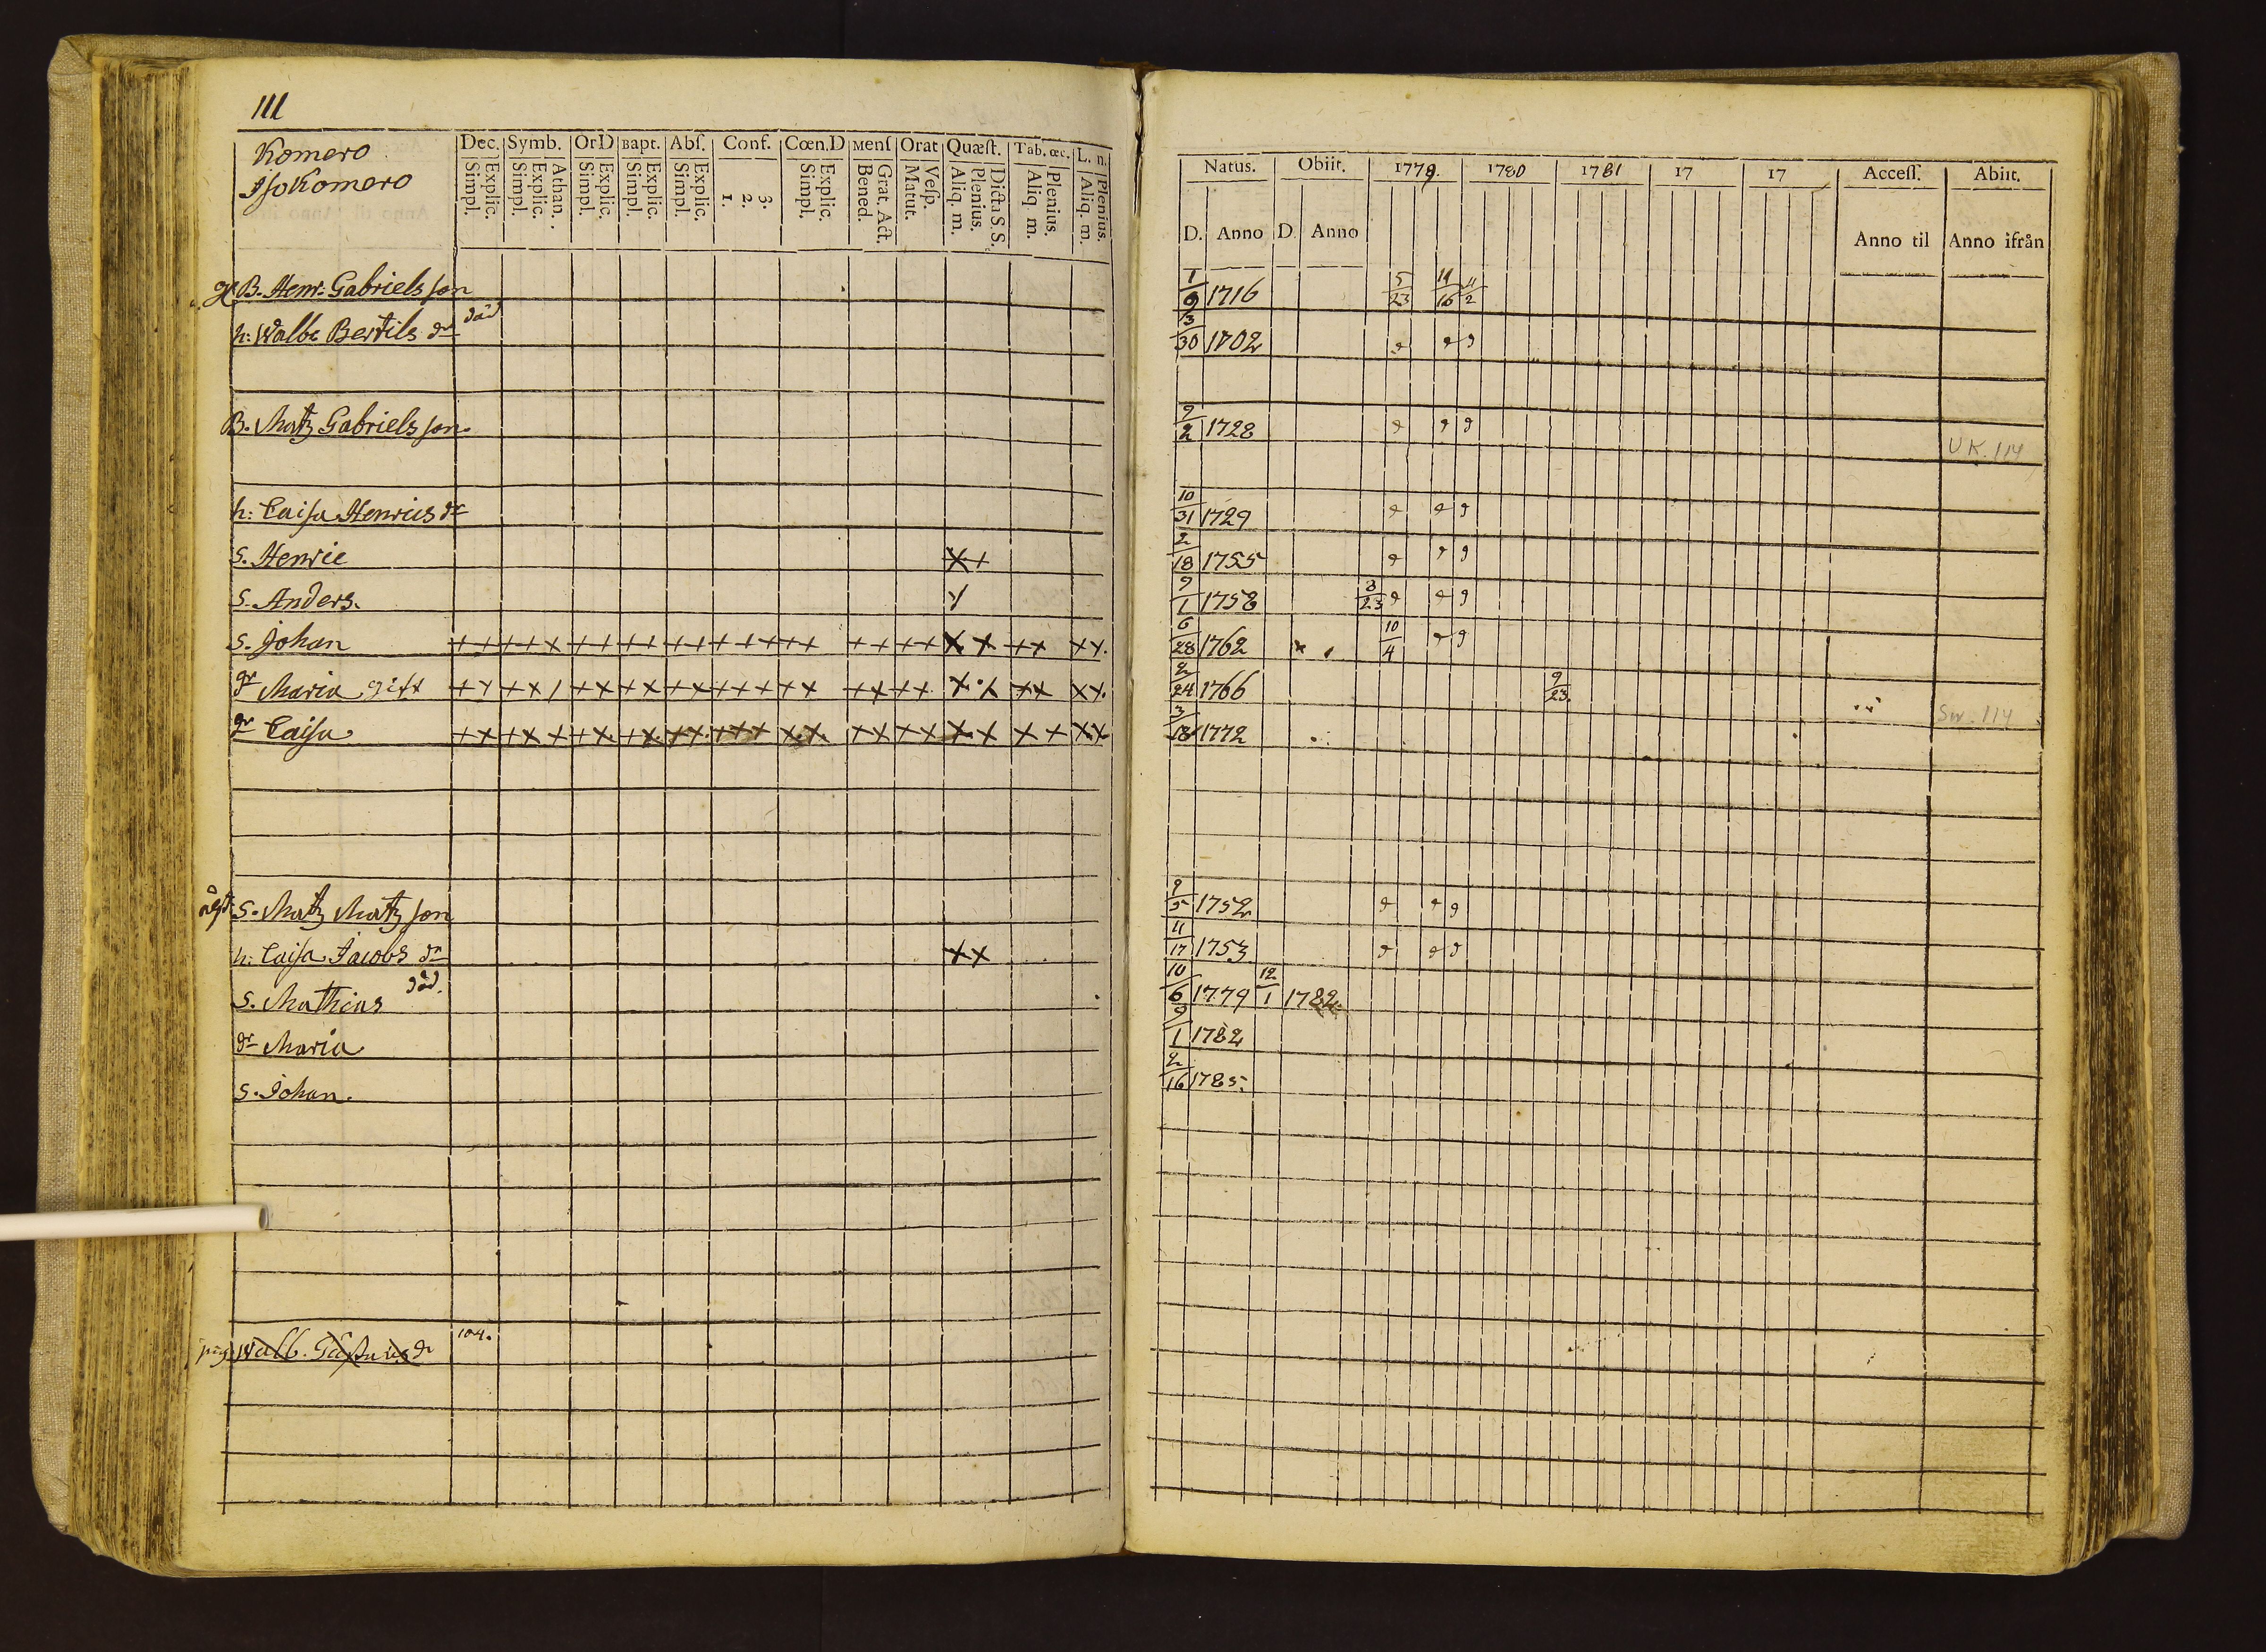 111
Komero
Isokomero
Dec. Symb. Or D Bapt. Abſ. Conf. Cœn. D Menſ Orat Quæſt. Tab. œc. L. n.
Explic. Simpl. Athan. Explic. Simpl. Explic. Simpl. Explic. Simpl. Explic. Simpl. 3. 2. 1. Explic. Simpl. Grat. Act. Bened. Veſp. Matut. Dicta S. S. Plenius. Aliq. m. Plenius. Aliq. m. Plenius. Aliq. m.
B. Henr: Gabriels son
h: Walb: Bertils dr död
B. Matz Gabriels son
h: Caisa Henrics dr
S. Henric X +
S. Anders.
S. Johan ++ +++ ++ ++ ++ +++ ++ ++ ++ X X ++ ++.
dr Maria gift
dr Caisa
S. Matz Matz son
h: Caisa Jacobs dr XX
S. Mathias död.
dr Maria
S. Johan.
pig. Walb. dr 104.
Natus. Obiit. 1779. 1780 1781 17 17 Acceſſ. Abiit.
D. Anno D. Anno Anno til Anno ifrån
1/9 1716 5/23 11/16 11/2
3/30 1702
9/2 1728
UK. 114
10/31 1729
2/18 1755
9/1 1758 3/23
6/28 1762 10/4
2/24 1766 9/23
3/18 1772 Sw. 114
9/5 1752
11/17 1753
10/6 1779 12/1 1782
9/1 1782
2/16 1785.